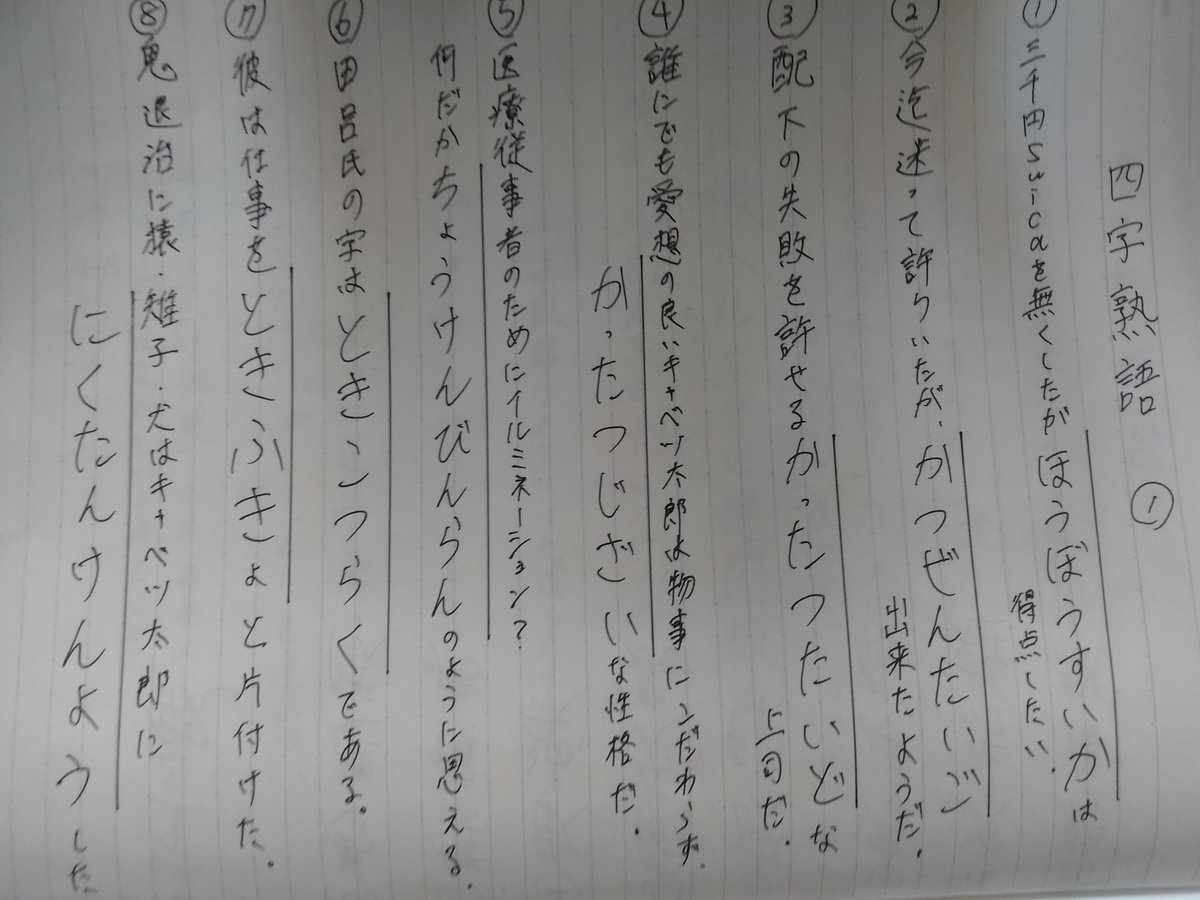 四字熟語 ①
①三千円Suicaを無くしたがほうぼうすいかは
得点したい.
②今迄迷って許りいたが、かつぜんたいご
出来たようだ.
③配下の失敗を許せるかったつたいどな
上司だ.
④誰にでも愛想の良いキャベツ太郎は物事にこだわらず.
かったつじざいな性格だ.
⑤医療従事者のためにイルミネーション?
何だかちょうけんびんらんのように思える.
⑥田呂氏の字はときこつらくである.
⑦彼は仕事をときふきょと片付けた.
⑧鬼退治に猿・雉子・犬はキャベツ太郎に
にくたんけんようした